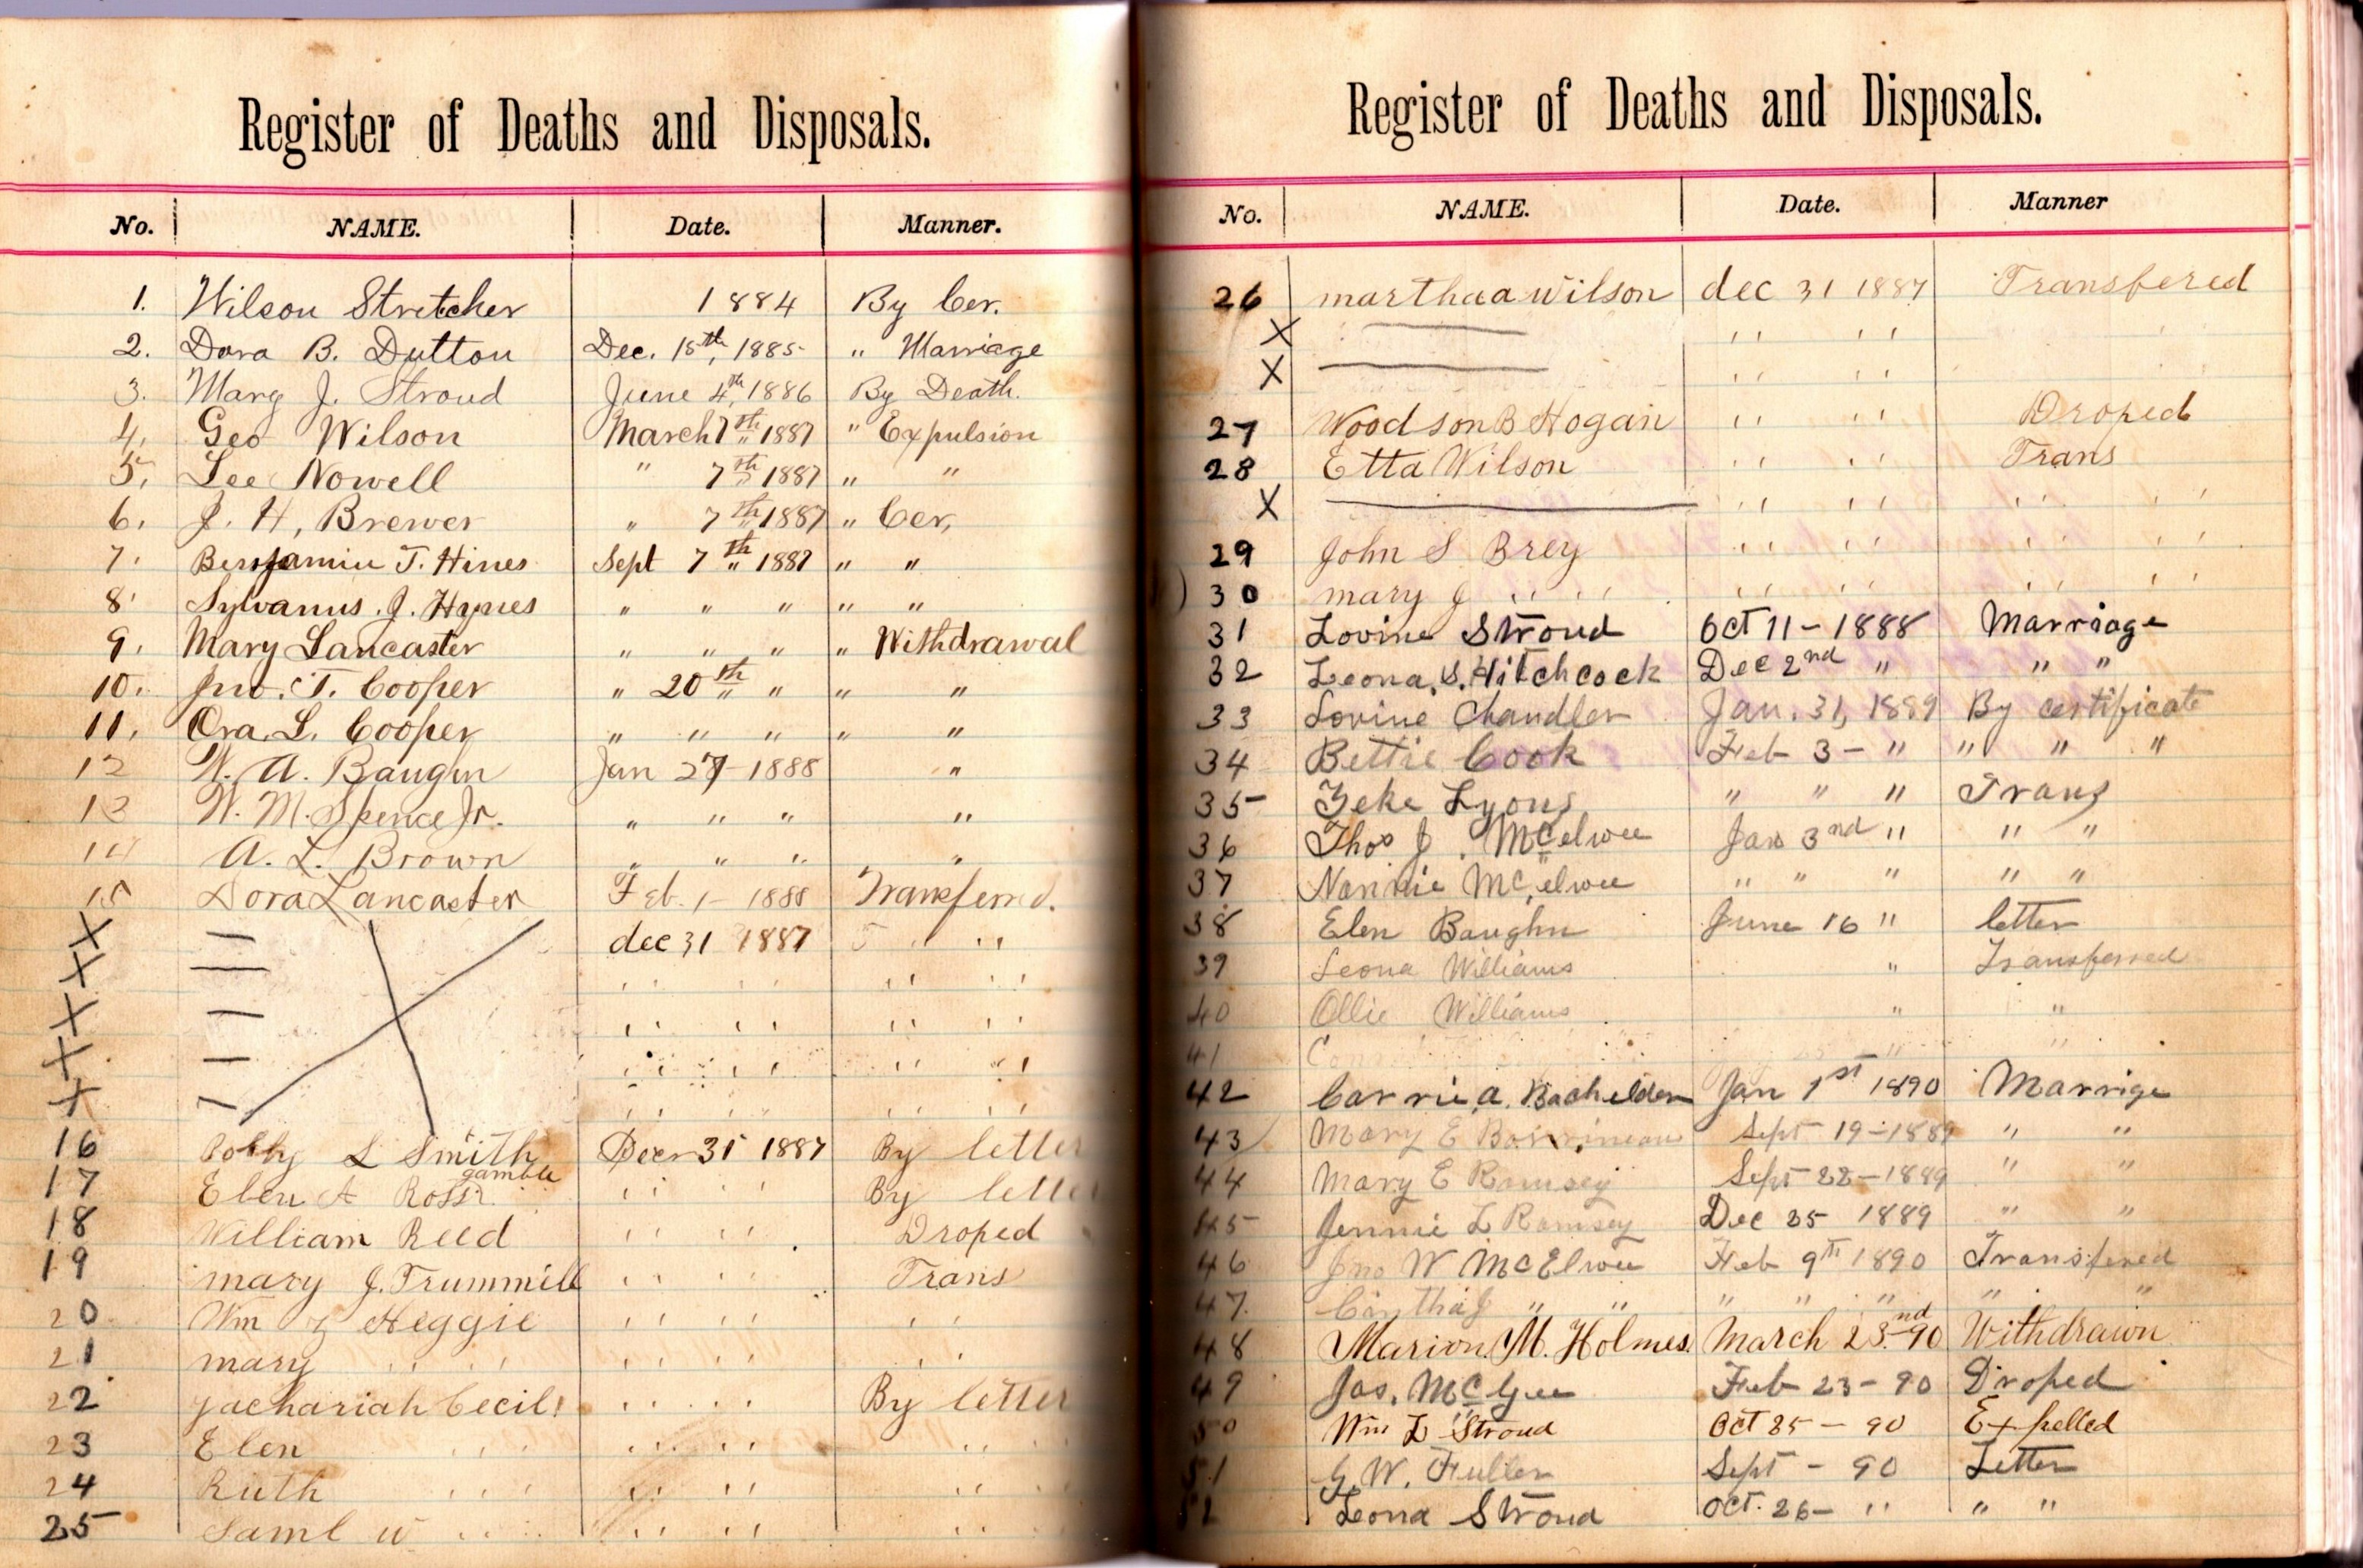 Register of Deaths and Disposals.
No. NAME. Date. Manner.
1. Wilson Stretcher 1884 By Cer.
2. Dora B. Dutton Dec. 15th, 1885 " Marriage
3. Mary J. Stroud June 4th, 1886 By Death.
4. Geo Wilson March 7th 1887 " Expulsion
5. Lee Nowell " 7th 1887 " "
6. J. H, Brewer " 7th 1887 " Cer,
7. Benjamin T. Hines Sept 7th 1887 " "
8. Sylvanus. J. Hynes " " " " "
9. Mary Lancaster " " " " Withdrawal
10. Jno. T. Cooper " 20th " " "
11. Ora. L. Cooper " " " " "
12 W. A. Baugm Jan 1888 "
13 W. M. Spence Jr. " " " "
14 A. L. Brown " " " "
15 Dora Lancaster Feb. 1- 1888 Transferred.
X — dec 31 1887 " "
X — " " " "
X — " " " "
X — " " " "
X — " " " "
16 L Smith Decr 31 1887 By letter
gamble
17 Elen A Ross " " By letter
18 William Reed " " Droped
19 mary J. Trummill " " Trans
20 Wm Heggie " " " "
21 mary " " " " " "
22 zachariah Cecil " " By letter
23 Elen " " " " " "
24 Ruth " " " " " "
25 Saml W " " " " " "
Register of Deaths and Disposals.
No. NAME. Date. Manner
26 martha a Wilson dec 31 1887 Transfered
X — " "
X — " "
27 Woodson B Hogan " " Droped
28 Etta Wilson " " Trans
X — " " " "
29 John S Brey " " " "
30 mary J " " " " " "
31 Lovine Stroud Oct 11 - 1888 Marriage
32 Leona. S. Hitchcock Dec 2nd " " "
33 Lovine Chandler Jan. 31, 1889 By certificate
34 Bettie Cook Feb 3 - " " " "
35 Zeke Lyons " " " Trans
36 Thos J. McElwee Jan 3rd " " "
37 Nannie McElwee " " " " "
38 Elen Baughn June 16 " letter
39 Leona Williams " Transferred
40 Ollie Williams " "
41
42 Carrie, a. Bachelder Jan 1st 1890 Marrige
43 Mary E Sept 19 - 1889 " "
44 Mary E Ramsey Sept 22 - 1889 " "
45 Jennie L Ramsey Dec 25 1889 " "
46 Jno W McElwee Feb 9th 1890 Transfered
47. J " " " " " " "
48 Marion. M. Holmes. March 23nd 90 Withdrawn
49 Jas. McGee Feb 23 - 90 Droped
50 Wm L Stroud Oct 25 - 90 Expelled
51 G. W. Fuller Sept - 90 Letter
52 Leona Stroud Oct. 26 - " " "